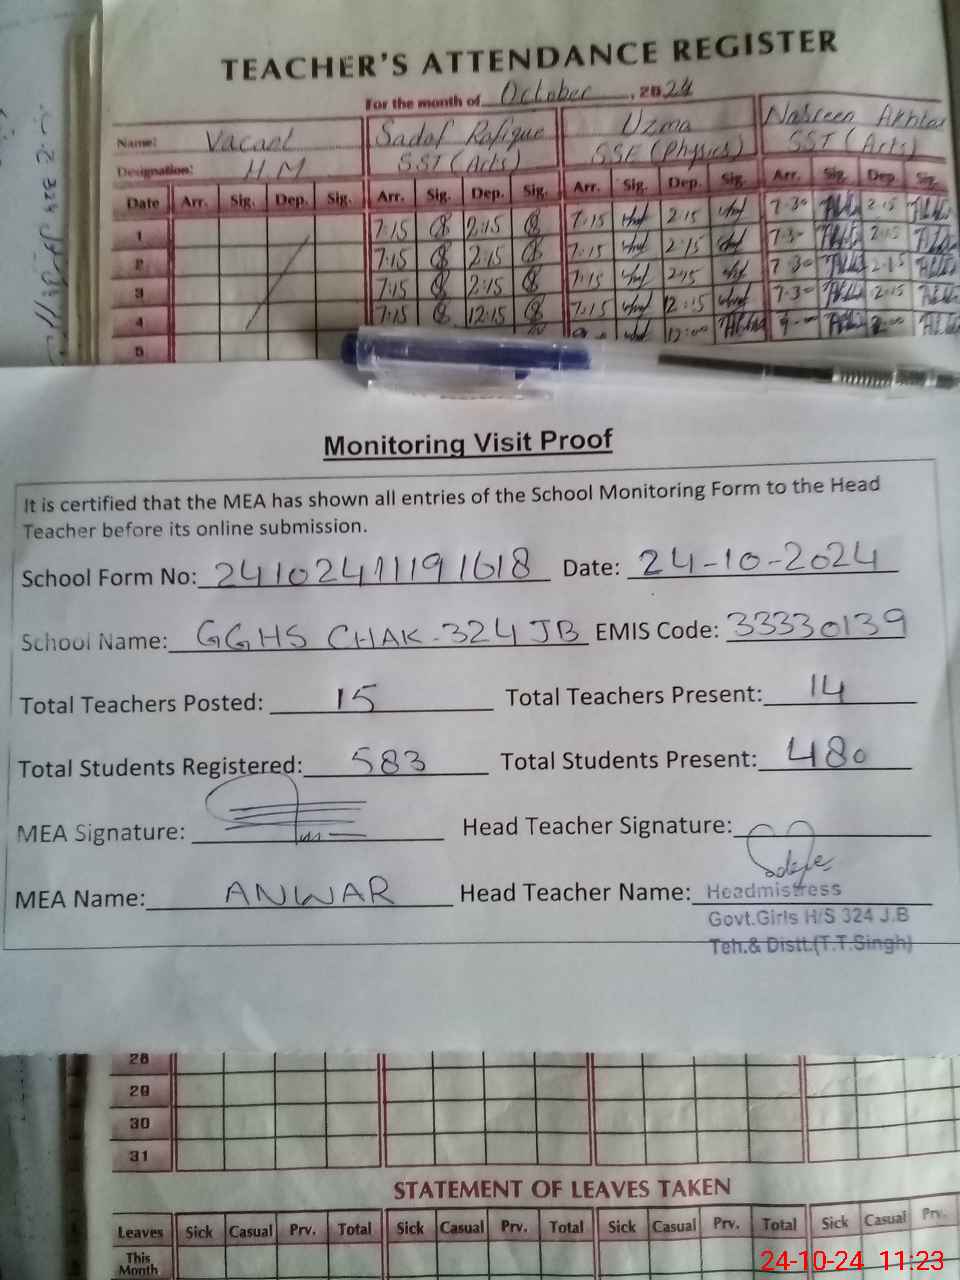 TEACHER'S ATTENDANCE REGISTER
For the month of October, 2024
Name: Vacant Sadaf Rafique Uzma Nasreen Akhtar
Designation: H.M SST (Arts) SSE (Physics) SST (Arts)
Date Arr. Sig. Dep. Sig. Arr. Sig. Dep. Sig. Arr. Sig. Dep. Sig. Arr. Sig. Dep Sig.
1 7:15 2:15 7:15 2:15 7-30 2:15
2 7:15 2:15 7:15 2:15 7-30 2:15
3 7:15 2:15 7:15 2:15 7-30 2:15
4 7:15 12:15 7:15 12:15 7-30 2:15
5 12:00
Monitoring Visit Proof
It is certified that the MEA has shown all entries of the School Monitoring Form to the Head
Teacher before its online submission.
School Form No: 24102411191618 Date: 24-10-2024
School Name: GGHS CHAK.324 JB EMIS Code: 33330139
Total Teachers Posted: 15 Total Teachers Present: 14
Total Students Registered: 583 Total Students Present: 480
MEA Signature: Head Teacher Signature:
MEA Name: ANWAR Head Teacher Name: Headmistress
Govt.Girls H/S 324 J.B
Teh.& Distt.(T.T.Singh)
28
29
30
31
STATEMENT OF LEAVES TAKEN
Leaves Sick Casual Prv. Total Sick Casual Prv. Total Sick Casual Prv. Total Sick Casual Prv.
This
Month
24-10-24 11:23